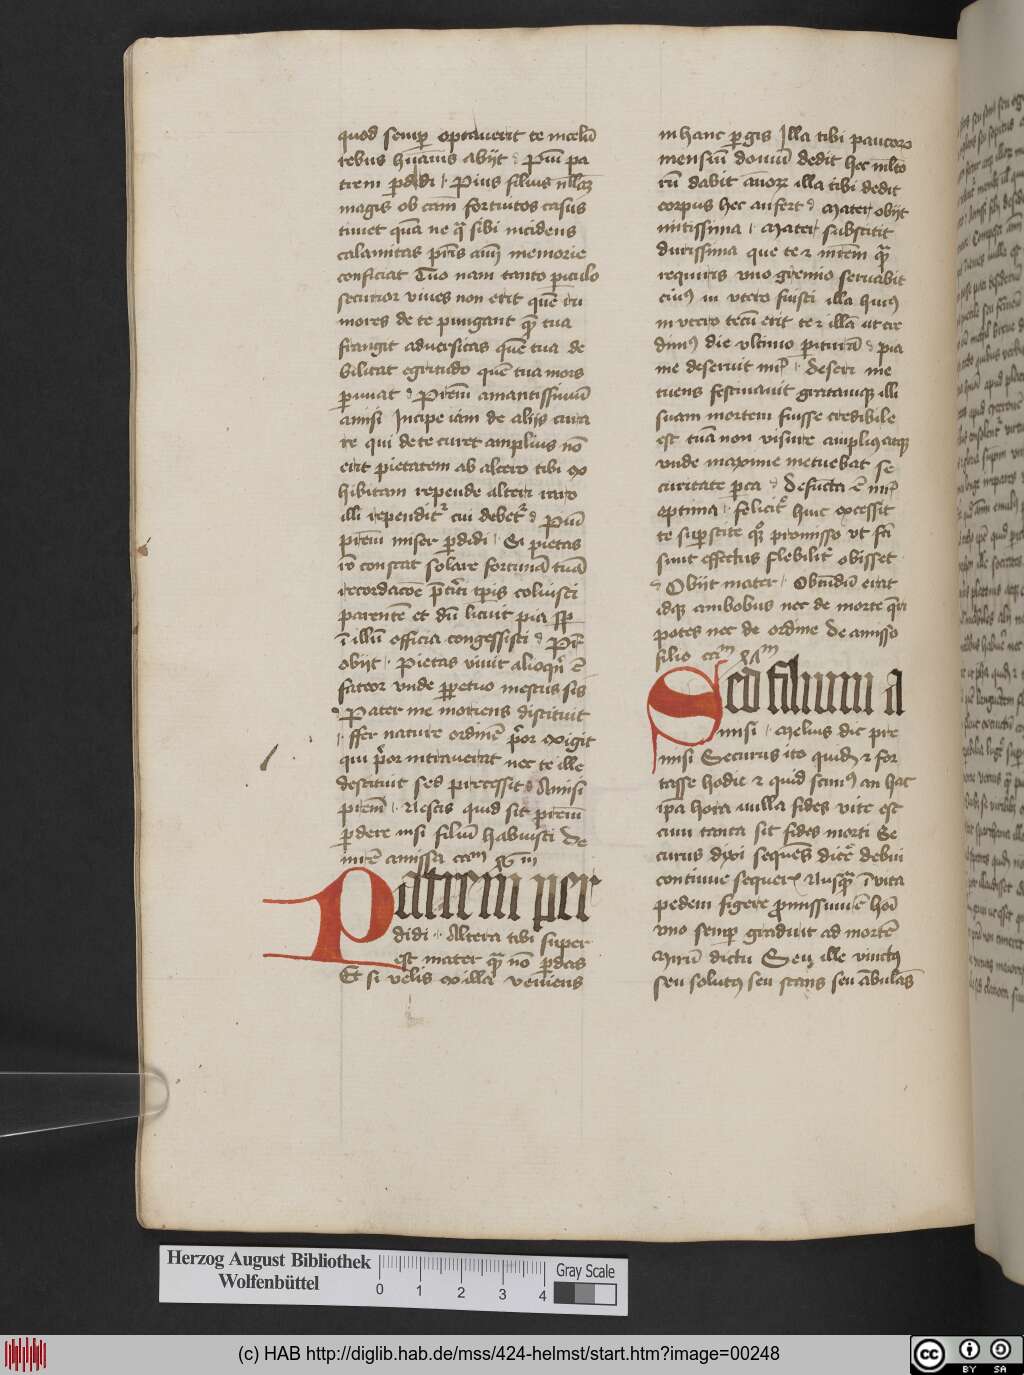 quod semꝑ optauerit te incolūı
rebus hūanis abijt ꝫ Pıū pa
trem ꝑdidi Pius filius nllaꝫ
magis ob cām fortuitos casus
timet quā ne qͥ sibi incidens
calamitas pr̄is aīu memorie
conficiat Tuo nam tanto piculo
securior viues non erit quē tu
mores de te pungant qͣ tua
frangit aduersitas quē tua de
bilitat egritudo quē tua mors
ꝑimat Prēm amantissimū
amisi Incipe iam de alijs cura
re qui de te curet amplius nō
erit pietatem ab altero tibi ex
hibitam repende alteri raro
illi rependitᷣ cui debetᷣ Piū
prēm miser ꝑdidi Si pietas
ꝟo constat solare fortunā tuā
recordacōe p̄titi tp̄is coluisti
parentē et dū licuit pia sp̄
ī illū officia congessisti Pr̄
obijt Pietas viuit alioqn̄ ē
fateor vnde ꝑpetuo mestus sis
Pater me moriens destituit
Fer nature ordinē pͥor exigit
qui pͥor intrauerat nec te ille
destituit sed precessit Amisi
prēm Nescis quid sit prēm
ꝑdere nisi filiū habuisti De
mrē amissa cam xlviiim
Patrem per
didi Altera tibi super
est mater qͣ nō ꝑdas
Et si velis ex illa veniens
in hanc ꝑgis Illa tibi paucoꝝ
mensiū domū dedit hec mlto
rū dabit ānoꝝ illa tibi dedit
corpus hec aufert Mater obijt
mitissima Mater substitit
durissima que te ⁊ mrēm qͣ
requiris vno gremio seruabit
cuiꝰ in vtero fuisti illa huiꝰ
in vtero tecū erit te ⁊ illā ut cre
dimꝰ die vltimo ꝑiturā pia
me deseruit mr̄ Deseri me
tuens festinauit gratamqꝫ illi
suam mortem fuisse credibile
est tuā non visure ampliꝰ atqꝫ
vnde maxime metuebat se
curitate ꝑta Defūcta ē mr̄
optima Feliciť hinc excessit
te sup̄stite qͦ promisso vt fti
sunt effectus flebilitᷣ obisset
Obijt mater Obeūdū erat
idqꝫ ambobus nec de morte qͥri
potes nec de ordine De amisso
filio cam xlixm
Sed filium a
misi Melius dic pre
misi Securus ito quidē ⁊ for
tasse hodie ⁊ quid scimꝰ an hac
ip̄a hora nulla fides vite est
cum tanta sit fides morti Se
curus dixi sequēs dicē debui
continue sequerꝭ Nusqͣ ī vita
pedem figere ꝓmissum ē hoī
vno semꝑ graditur ad mortē
Mirū dictu Seu ille vinctꝰ
seu solutꝰ seu stans seu ābulās
Herzog August Bibliothek
Wolfenbüttel
0 1 2 3 4
Gray Scale
(c) HAB http://diglib.hab.de/mss/424-helmst/start.htm?image=00248
cc BY SA